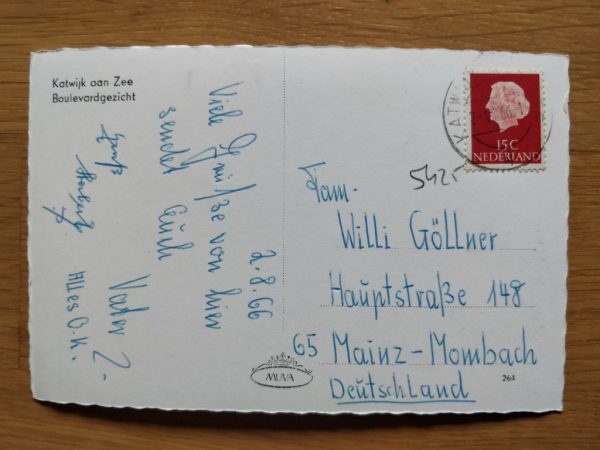 Katwijk aan Zee
Boulevardgezicht
2.8.66
Viele Grüße von hier
sendet Euch
Vater
Alles O.K.
Gruß
KATW
66
15 C
NEDERLAND
5425
Fam.
Willi Göllner
Hauptstraße 148
65 Mainz-Mombach
Deutschland
MUVA
264